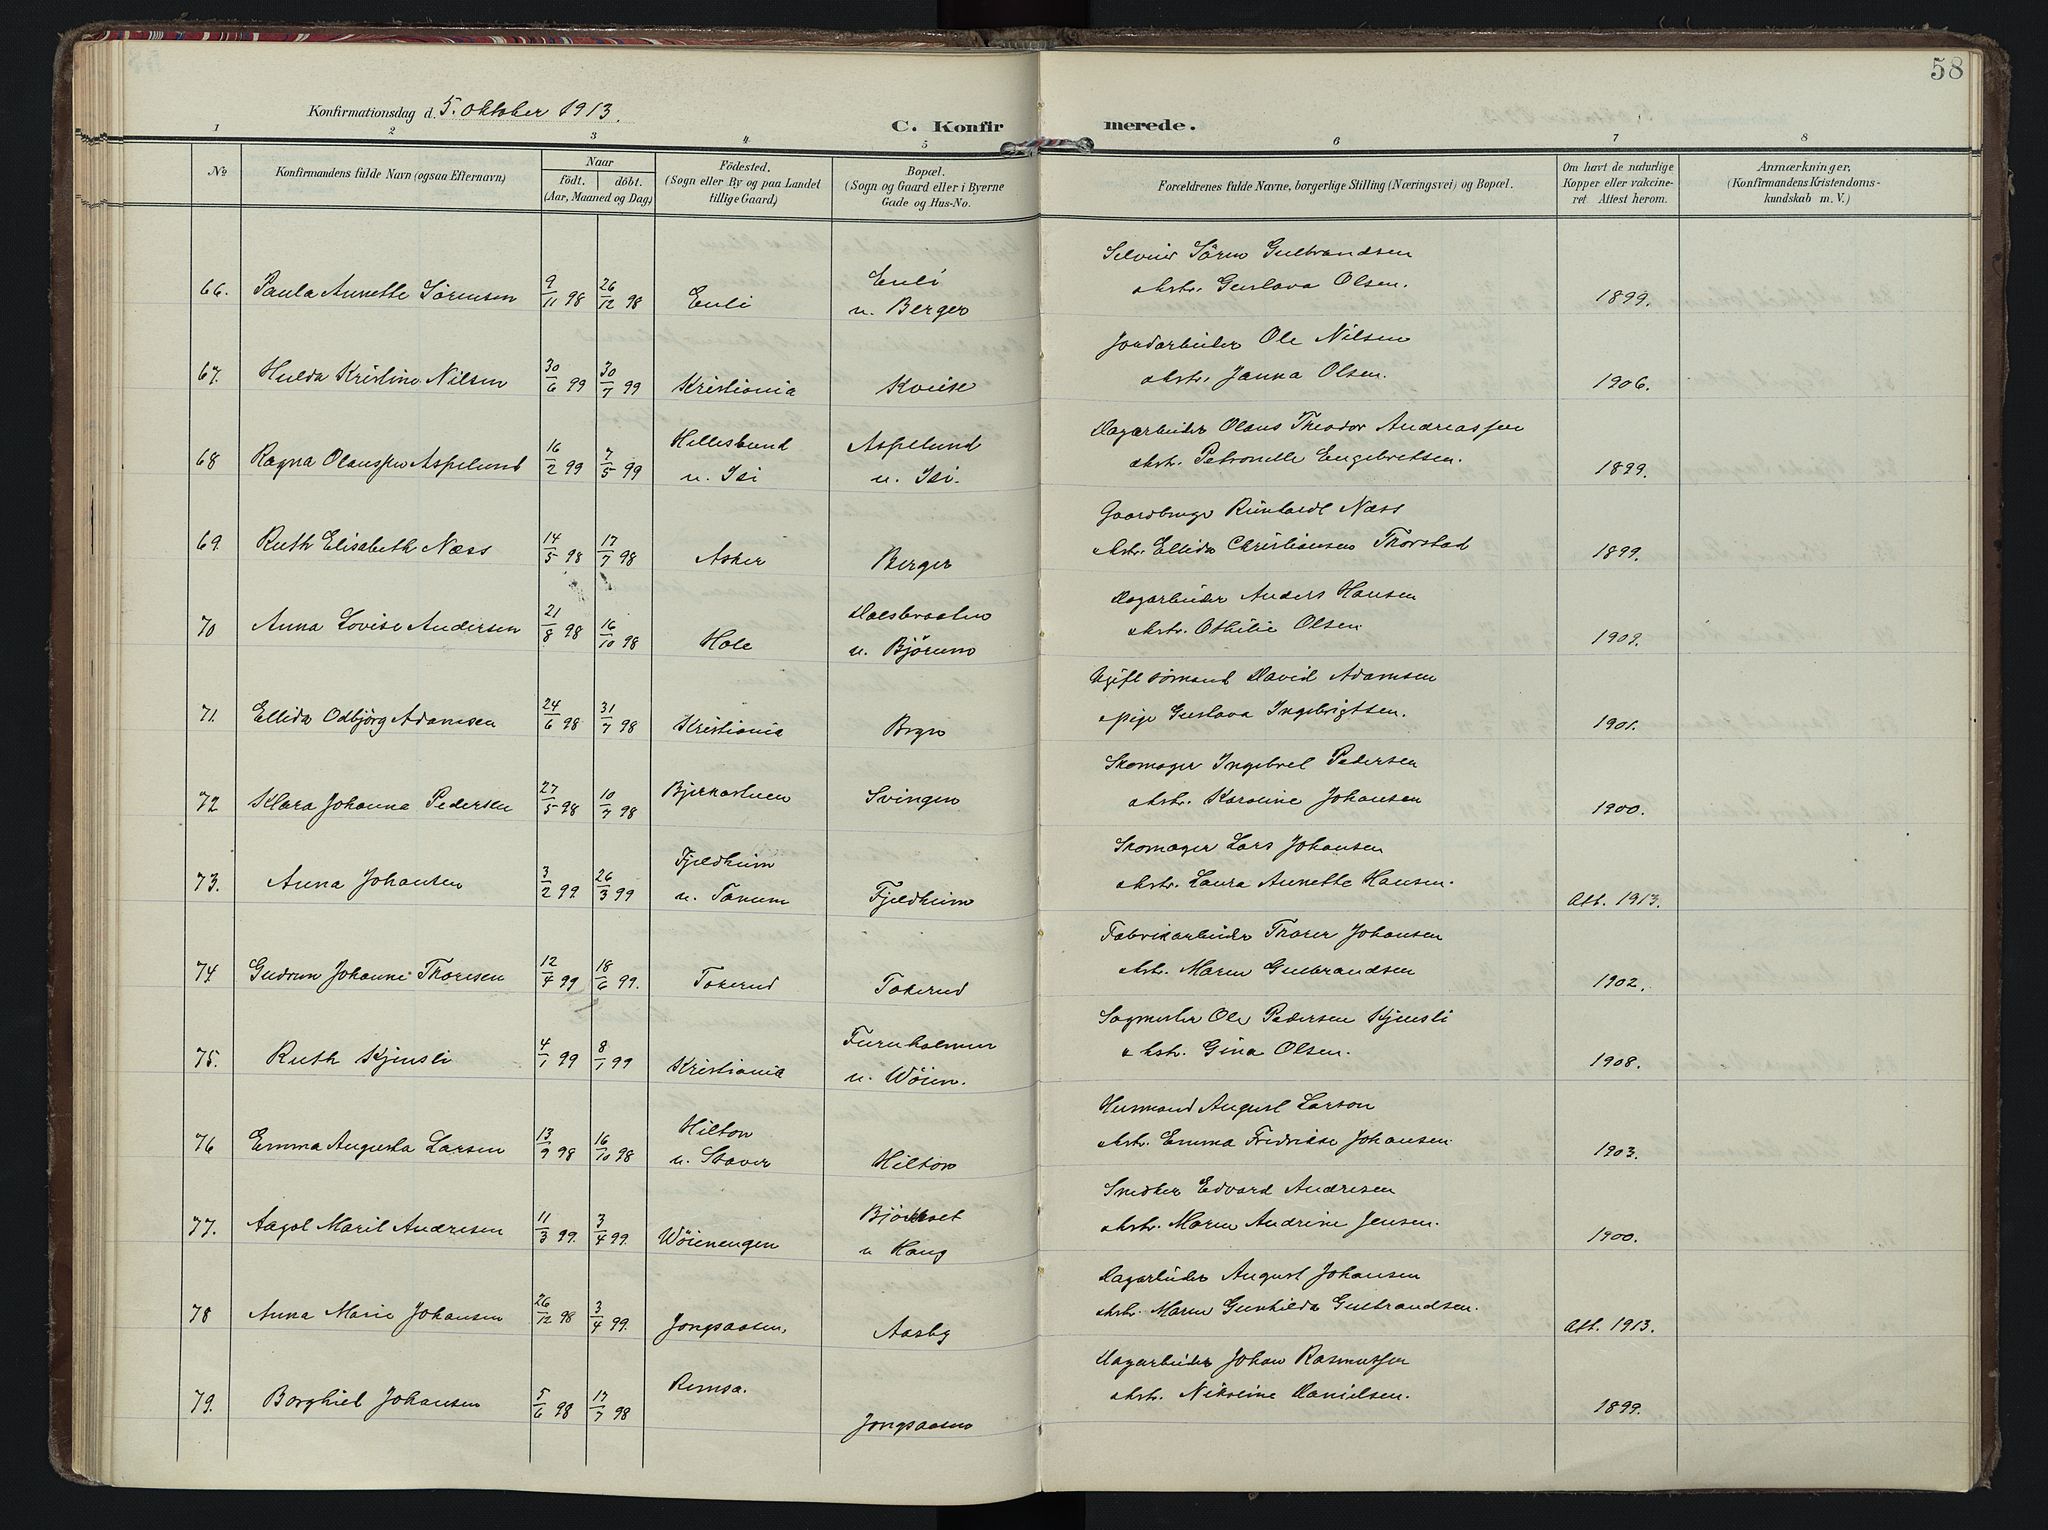 58
Konfirmationsdag d. 5. oktober 1913.
C. Konfirmerede.
1 2 3 4 5 6 7 8
No
Konfirmandens fulde Navn (ogsaa Efternavn)
Naar
födt. döbt.
(Aar, Maaned og Dag)
Födested.
(Sogn eller By og paa Landet
tillige Gaard)
Bopæl.
(Sogn og Gaard eller i Byerne
Gade og Hus-No.
Forældrenes fulde Navne, borgerlige Stilling (Næringsvei) og Bopæl.
Om havt de naturlige
Kopper eller vakcine-
ret Attest herom.
Anmærkninger,
(Konfirmandens Kristendoms-
kundskab m. V.)
66. Paula Annette Sörensen 9/11 98 26/12 98 Enli Enli
u. Berger
Sören Gulbrandsen
Gustava Olsen. 1899.
67. Hulda Kristine Nilsen 30/6 99 30/7 99 Kristiania Kveise
Jordarbeider Ole Nilsen
& hstr. Janna Olsen. 1906.
68 Ragna Olaussen Aspelund 16/2 99 7/5 99 Hillesbund
u. Isi
Aspelund
u. Isi.
Dagarbeider Olaus Theodor Andreassen
& hstr. Petronelle Engebretsen. 1899.
69. Ruth Elisabeth Næss 14/5 98 17/7 98 Asker Berger
Gaardbruger Reinhardt Næss
& hstr. Ellida Christiansen Thorstad 1899.
70 Anna Lovise Andersen 21/8 98 16/10 98 Hole
u. Björum
Dagarbeider Anders Hansen
& hstr. Othilie Olsen. 1909.
71. Ellida Odbjörg Adamsen 24/6 98 31/7 98 Kristiania Bryn
Ugift sömand David Adamsen
& pige Gustava Ingebrigtsen. 1901.
72 Klara Johanna Pedersen 27/5 98 10/7 98 Svingen
Skomager Ingebret Pedersen
& hstr. Karoline Johansen 1900.
73. Anna Johansen 3/2 99. 26/3 99 Fjeldheim
u. Tanum
Fjeldheim
Skomager Lars Johansen
& hstr. Laura Annette Hansen. Att. 1913.
74. Gudrun Johanne Thoresen 12/4 99 18/6 99. Tokerud Tokerud
Fabrikarbeider Thorer Johansen
& hstr. Maren Gulbrandsen 1902.
75. Ruth Kjensli 4/1 99 8/1 99 Kristiania Furuholmen
u. Wöien.
Sagmester Ole Pedersen Kjensli
& hstr. Gina Olsen. 1908.
76 Emma Augusta Larsen 13/9 98 16/10 98 Hilton
u. Staver
Hilton
Husmand August Larson
& hstr. Emma Fredrikke Johansen. 1903.
77. Aagot Marit Andresen 11/3 99. 3/4 99. Wöienengen
u Haug
Snedker Edvard Andresen
& hstr. Maren Andrine Jensen. 1900.
78 Anna Marie Johansen 26/12 98 3/4 99. Jongsaasen, Aasby
Dagarbeider August Johansen
& hstr. Maren Gunhilda Gulbrandsen. Att. 1913.
79. Borghild Johansen 5/6 98 17/7 98 Remsa. Jongsaasen
Dagarbeider Johan Rasmussen
& hstr. Nikoline Danielsen. 1899.